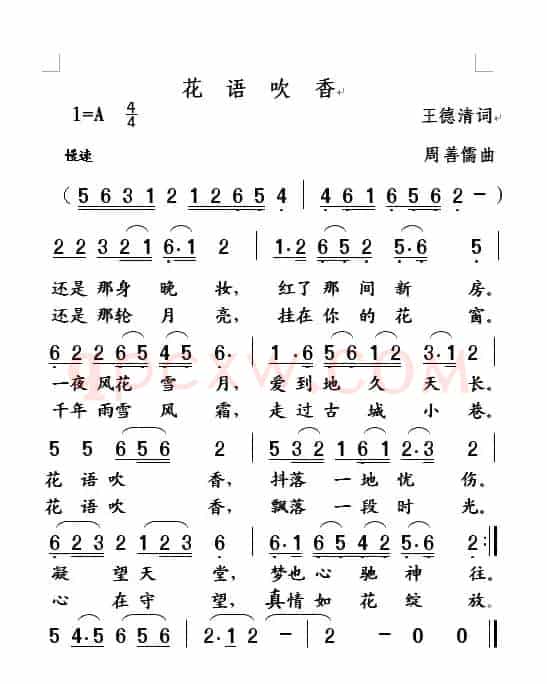 花语吹香
1=A 4/4 王德清词
慢速 周善儒曲
(5 6 3 1 2 1 2 6 5 4 | 4 6 1 6 5 6 2 - )
2 2 3 2 1 6· 1 2 | 1· 2 6 5 2 5· 6 5
还是那身晚妆，红了那间新房。
还是那轮月亮，挂在你的花窗。
6 2 2 6 5 4 5 6· | 1· 6 5 6 1 2 3· 1 2
一夜风花雪月，爱到地久天长。
千年雨雪风霜，走过古城小巷。
5 5 6 5 6 2 | 5 3 2 1 6 1 2· 3 2
花语吹香，抖落一地忧伤。
花语吹香，飘落一段时光。
6 2 3 2 1 2 3 6 | 6· 1 6 5 4 2 5· 6 2 :||
凝望天堂，梦也心驰神往。
心在守望，真情如花绽放。
5 4· 5 6 6 5 6 | 2· 1 2 - - | 2 - 0 0 ||
qpcxw.com